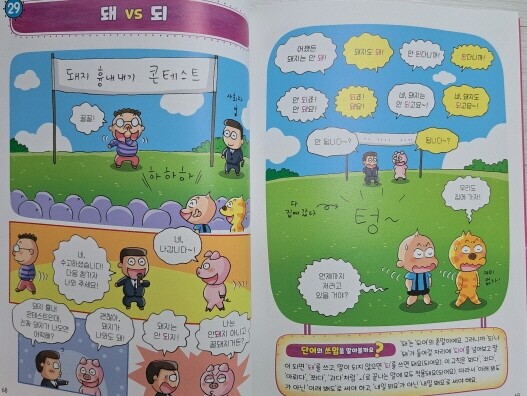 29
돼 vs 되
돼지 흉내 내기 콘테스트
사회자
꿀꿀!
하하하
네,
수고하셨습니다!
다음 참가자
나와 주세요!
네,
나갑니다~!
돼지 흉내
콘테스트인데,
진짜 돼지가 나오면
어떡해?
괜찮아,
돼지가
나와도 돼!
돼지는
안 되지!
나는
안돼지 아니고
꿀돼지거든?
68
어쨌든
돼지는 안 돼!
돼지도 돼!
안 된다니까!
된다니까!
안 되죠!
안 돼요!
되죠!
돼요!
네, 돼지는
안 되고요~!
네, 돼지도
되고요~!
안 됩니다~?
됩니다~?
다
집에 갔다
텅~
우리도
집에 가자!
언제까지
저러고
있을 거야?
재미
없다!
단어의 쓰임을 알아볼까요?